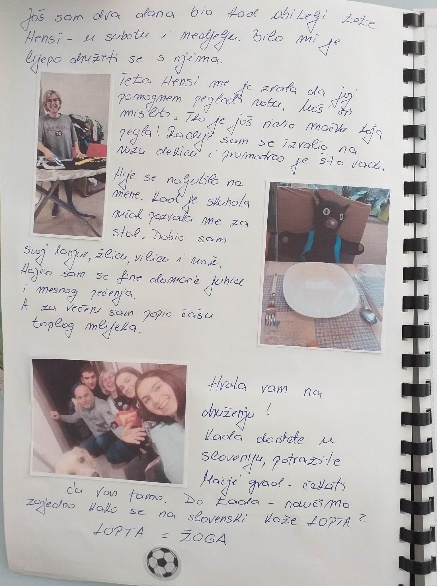 Još sam dva dana bio kod obitelji tete
Hensi - u subotu i nedjelju. Bilo mi je
lijepo družiti se s njima.
Teta Hensi me je zvala da joj
pomognem peglati robu.
mislite. Tko je još našao mačka koja
pegla! Radije sam se izvalio na
Nije se naljutila na
mene. Kad je skuhala
ručak pozvala me za
stol. Dobio sam
svoj tanjur, žlicu, vilicu i nož.
Najeo sam se fine domaće juhice
i mesnog pečenja.
A za večeru sam popio čašu
toplog mlijeka.
Hvala vam na
druženju!
Kada dođete u
Sloveniju, potražite
Mačji grad - čekati
ću vas tamo. Do tada - naučimo
zajedno kako se na slovenski kaže LOPTA?
LOPTA = ŽOGA